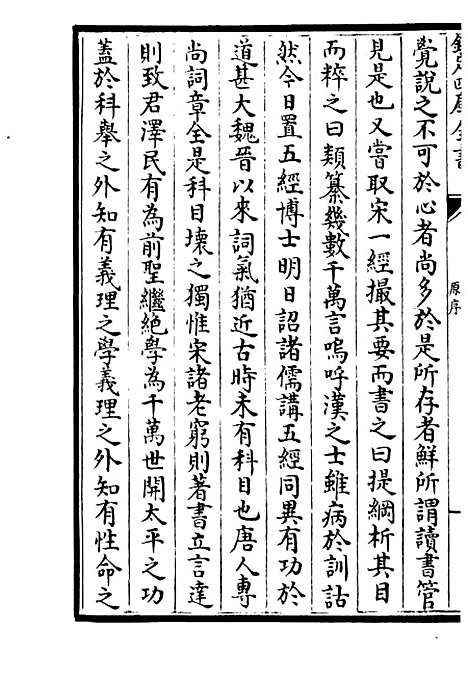 欽定四庫全書
原序
覺說之不可於心者尚多於是所存者鮮所謂讀書管
見是也又嘗取宋一經撮其要而書之曰提綱析其目
而粹之曰類纂幾數千萬言嗚呼漢之士雖病於訓詁
然今日置五經博士明日詔諸儒講五經同異有功於
道甚大魏晉以來詞氣猶近古時未有科目也唐人專
尚詞章全是科目壞之獨惟宋諸老窮則著書立言達
則致君澤民有為前聖繼絶學為千萬世開太平之功
蓋於科舉之外知有義理之學義理之外知有性命之